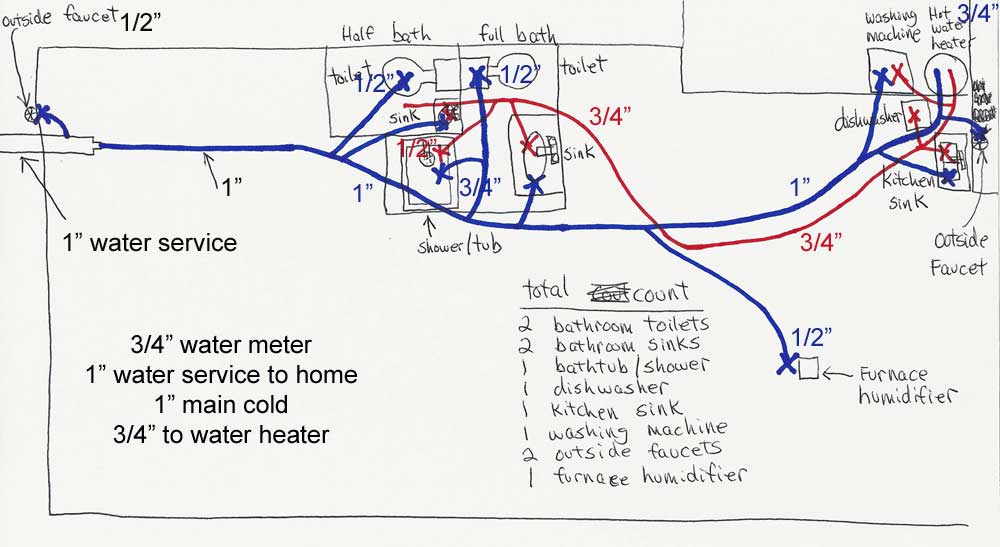 outside faucet 1/2”
Half bath
full bath
washing machine
Hot water heater
3/4”
toilet
1/2”
1/2”
toilet
sink
3/4”
dishwasher
1/2”
sink
1”
1”
3/4”
1”
kitchen sink
1” water service
shower/tub
3/4”
Outside Faucet
total count
2 bathroom toilets
2 bathroom sinks
1 bathtub/shower
1 dishwasher
1 kitchen sink
1 washing machine
2 outside faucets
1 furnace humidifier
1/2”
Furnace humidifier
3/4” water meter
1” water service to home
1” main cold
3/4” to water heater